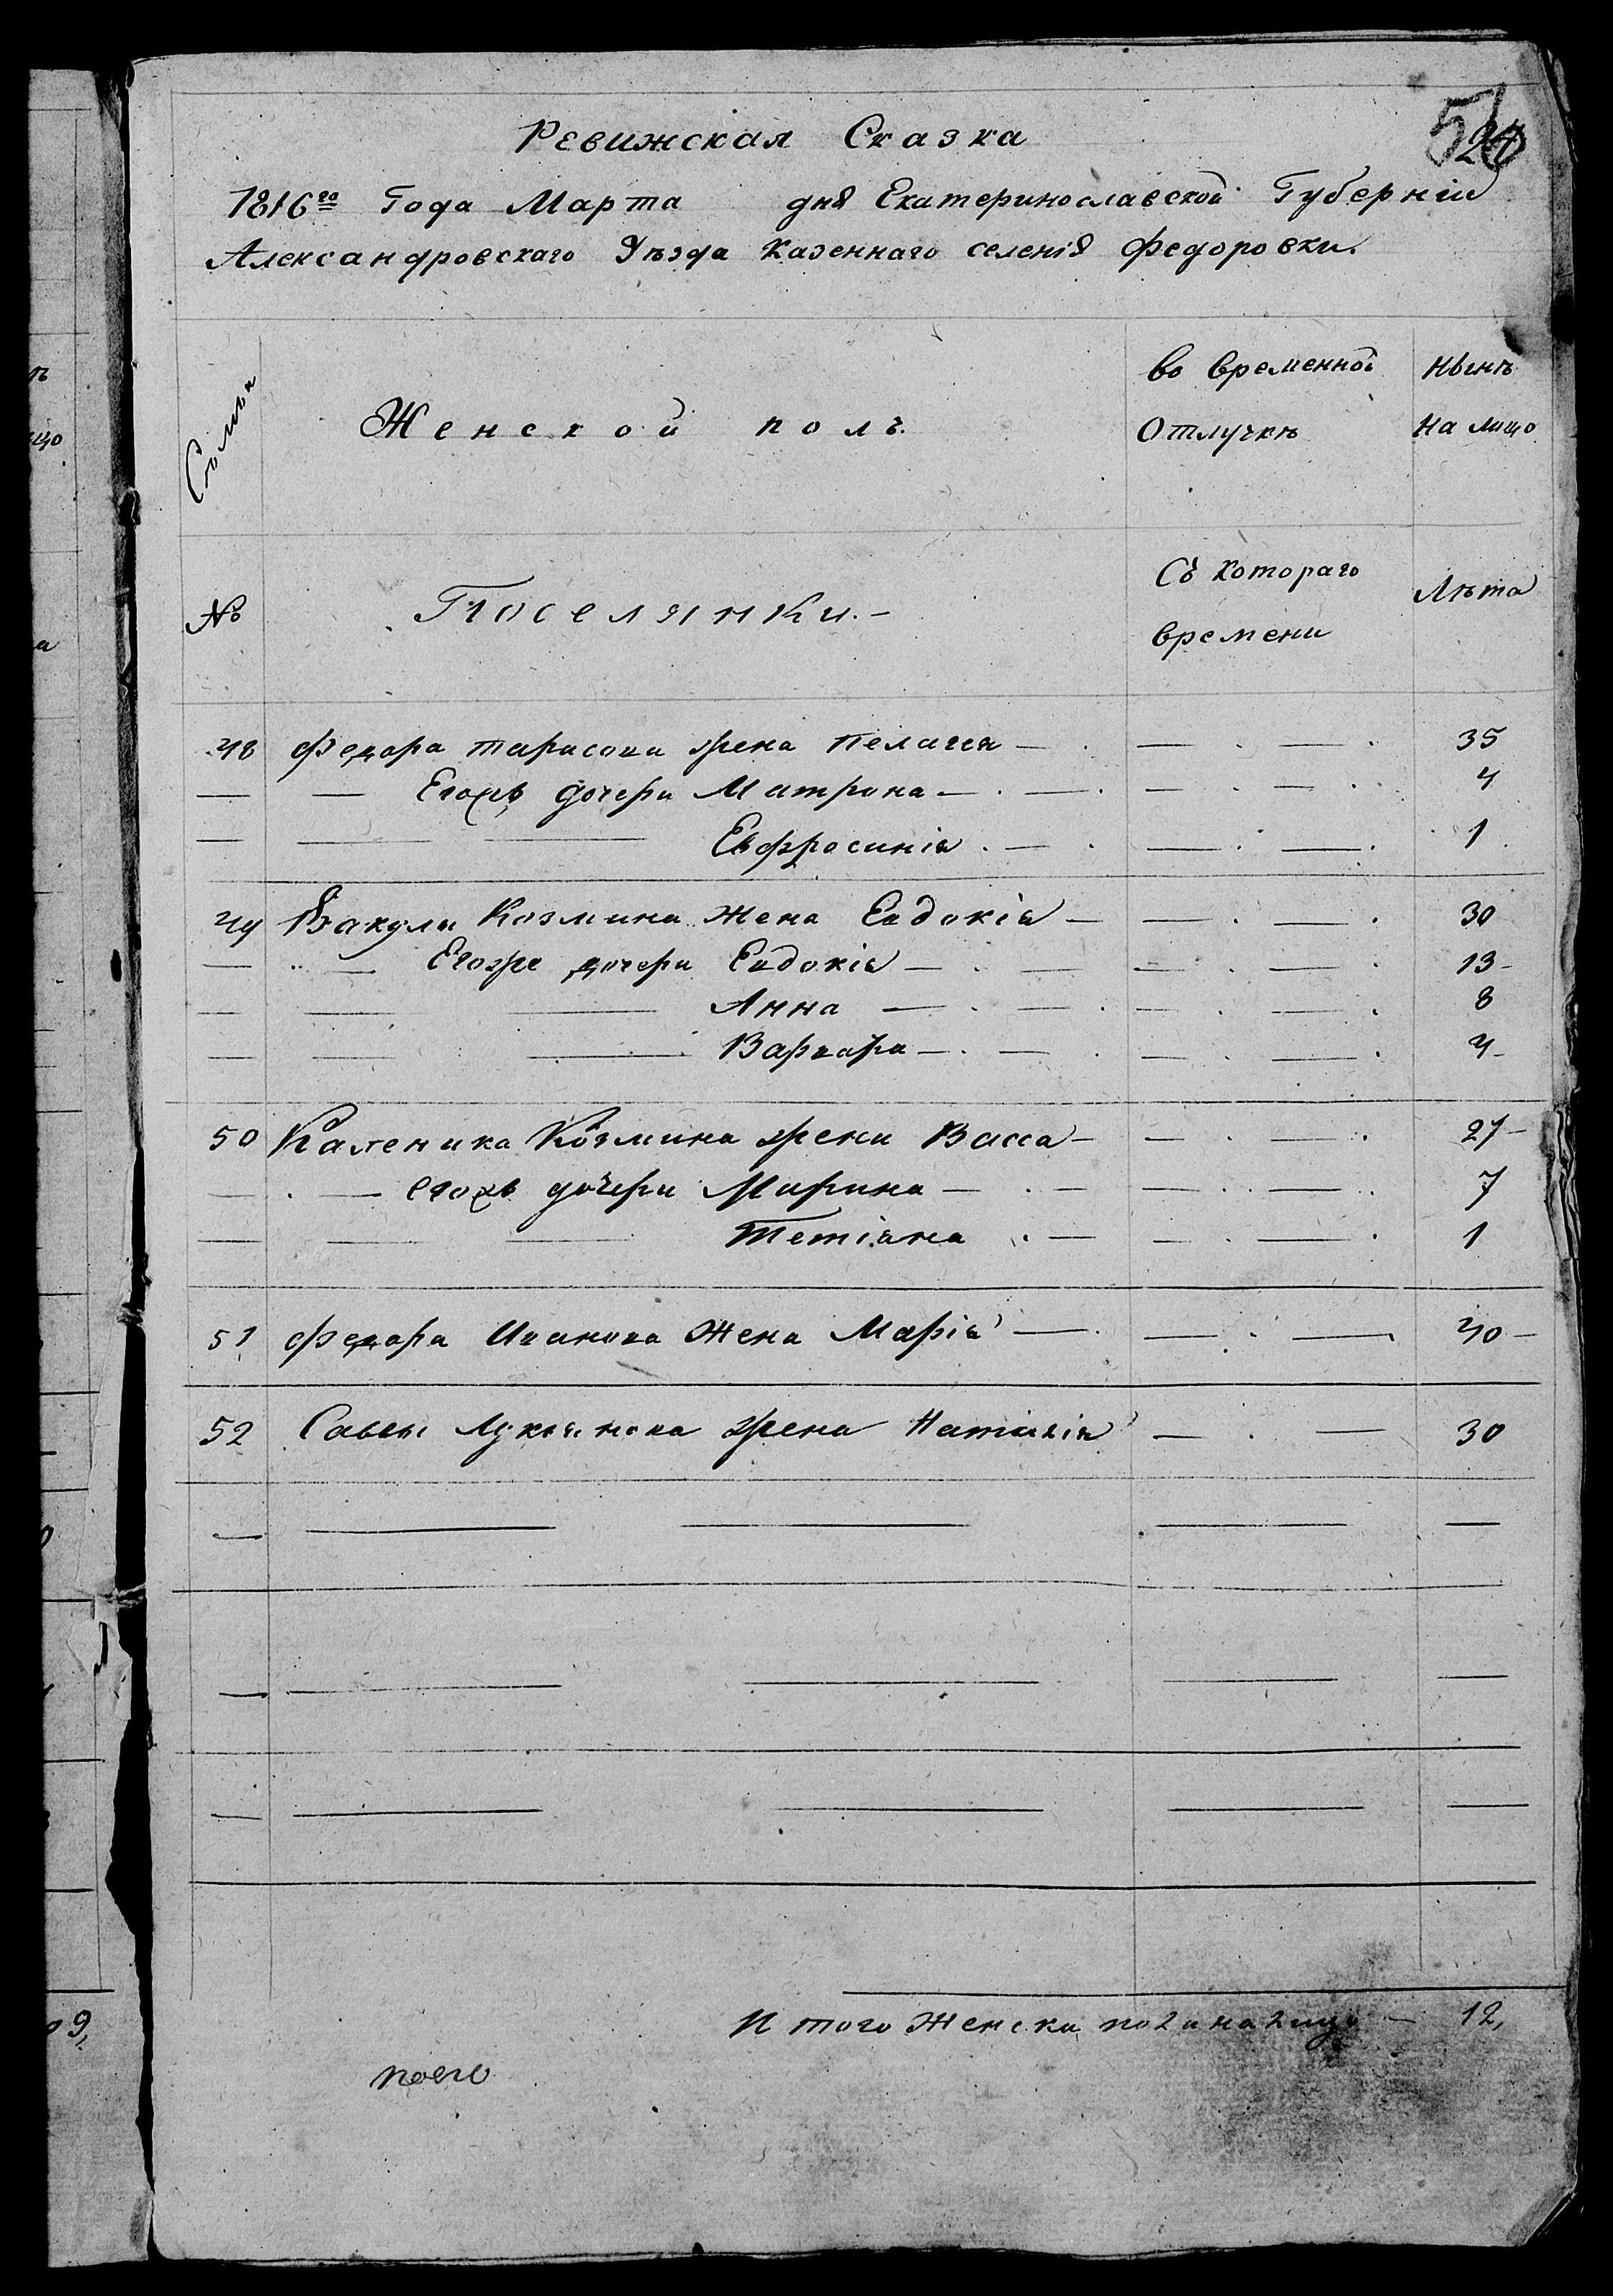 Ревижская Сказка
1816го Года Марта дня Екатеринославской Губерніи
Александровскаго Уѣзда Казеннаго селенія Федоровки.
Женской полъ.
во временной Отлучкѣ
Нынѣ На лицо
№
Поселянки.-
Съ котораго времени
Лѣта
48 Федора Тарасова жена Пелагея — 35
Егожъ дочери Матрона — 4
Евфросинія — 1
49 Вакулы Козмина жена Евдокія — 30
Егоже дочери Евдокія — 13
Анна — 8
Варвара — 4
50 Каленика Козмина жена Васса — 27
Егожъ дочери Марина — 7
Тетіана — 1
51 Федора Иванова Жена Марія — 40
52 Савы Лукянова жена Наталія — 30
Итого Женска пола на лицо — 12,